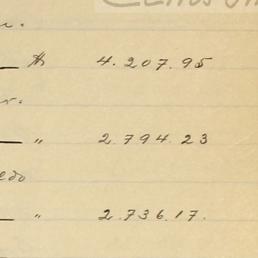 r.
$ 4.207.95
r.
" 2.794.23
edo
" 2.736.17.